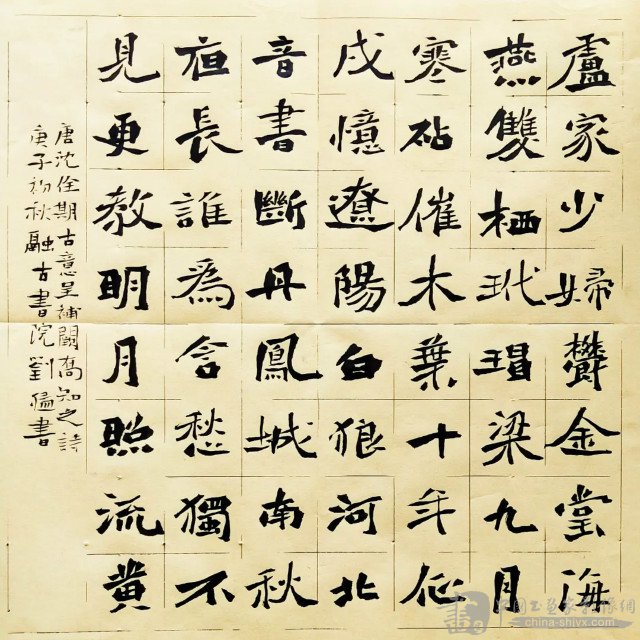 盧家少婦欝金堂海
燕雙栖玳瑁梁九月
寒砧催木葉十年征
戍憶遼陽白狼河北
音書斷丹鳳城南秋
夜長誰爲含愁獨不
見更教明月照流黄
唐沈佺期古意呈補闕喬知之詩
庚子初秋融古書院劉書